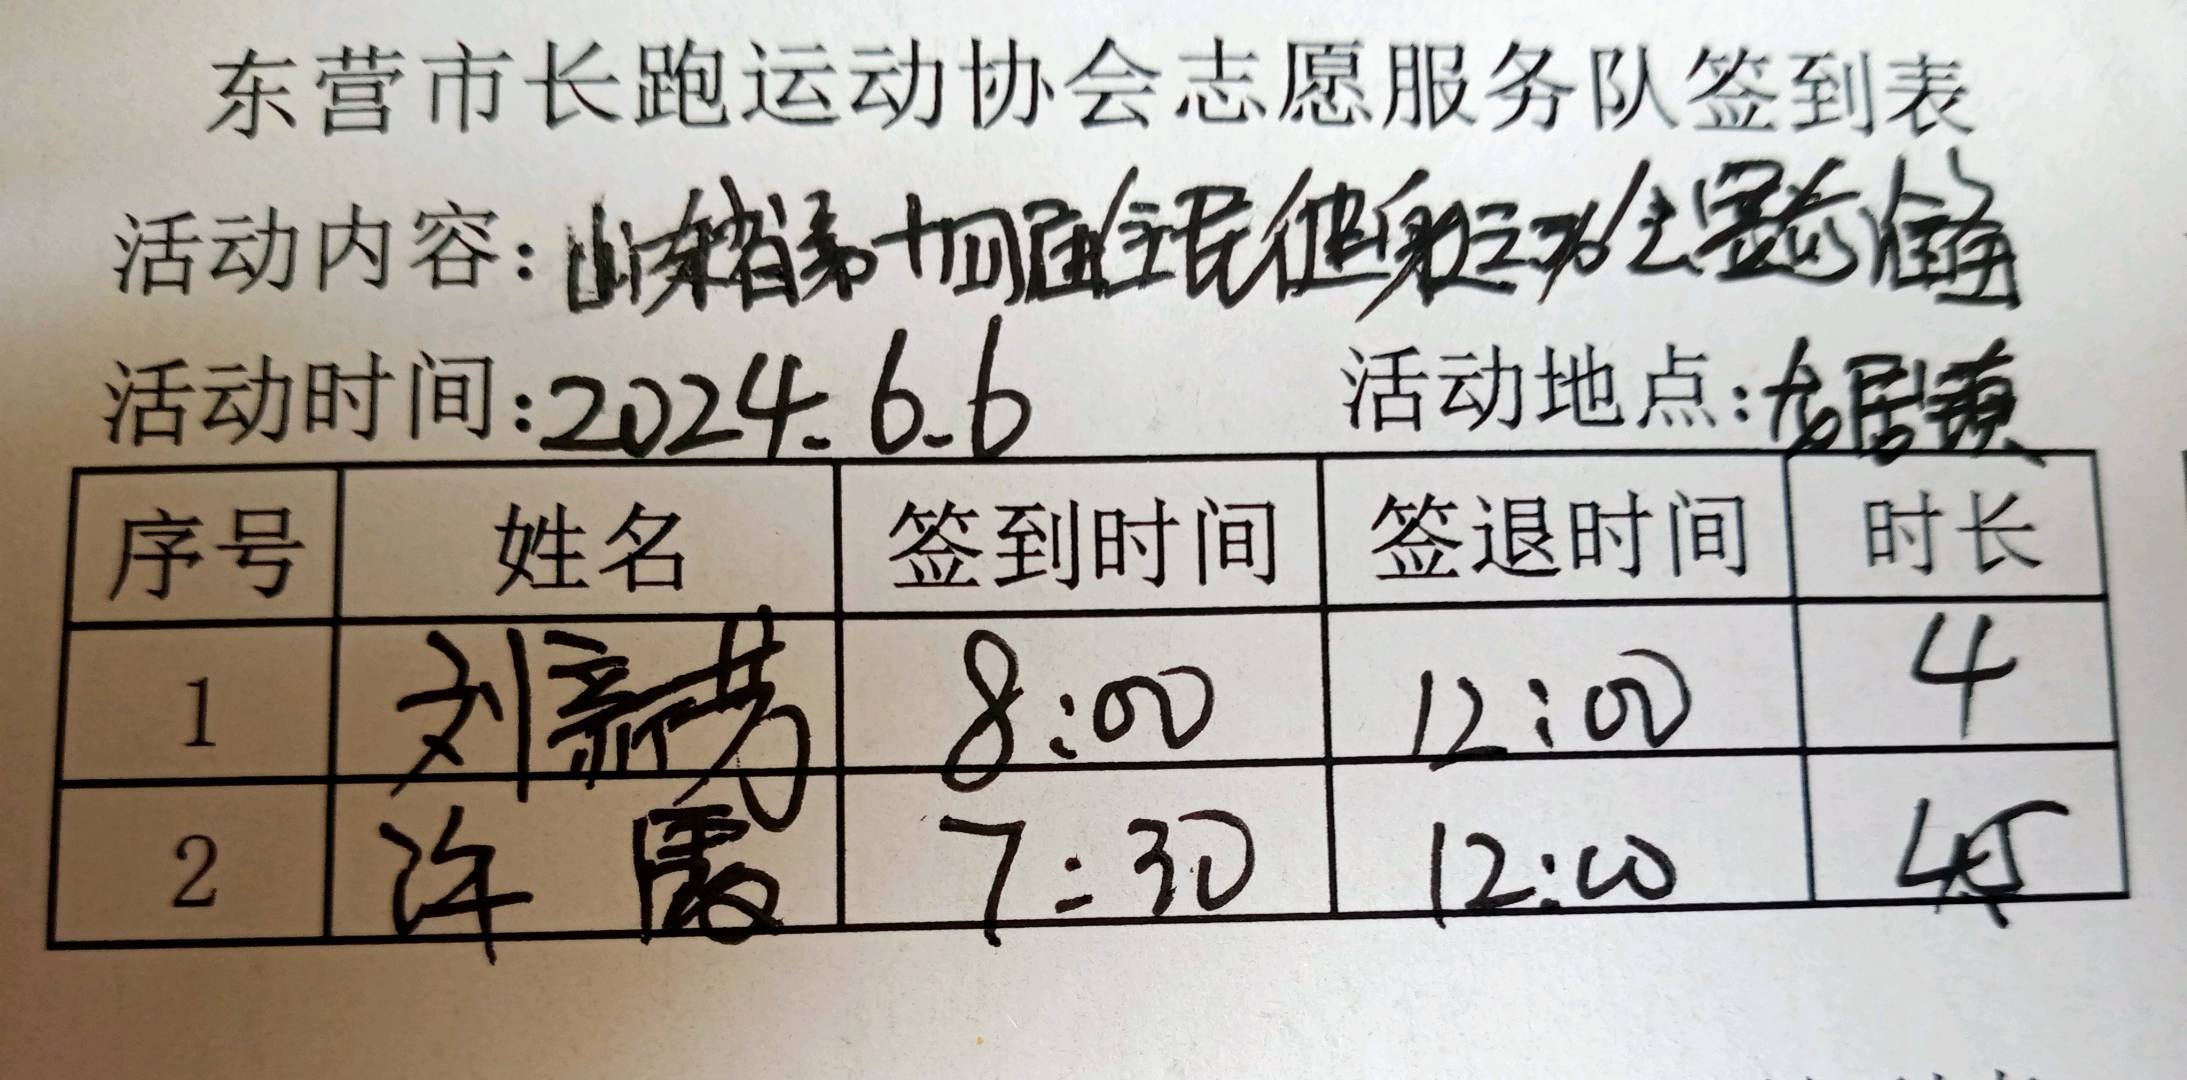 东营市长跑运动协会志愿服务队签到表
活动内容:山东省第十四届全民健身运动会
活动时间:2024.6.6 活动地点:龙居镇
序号 姓名 签到时间 签退时间 时长
1 刘新芳 8:00 12:00 4
2 许霞 7:30 12:00 4.5